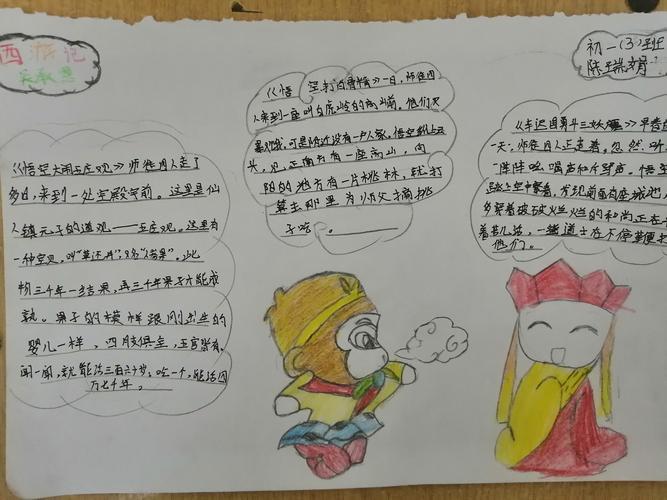 西游记
吴承恩
《悟空大闹五庄观》师徒四人走了
多日,来到一处宝殿前。这里是仙
人镇元子的道观——五庄观。这里有
一种宝贝,叫"草还丹",又名"人参果"。此
物三千年一结果,再三千年果子才能成
熟。果子的模样跟刚出生的
婴儿一样,四肢俱全,五官皆有,
闻一闻,就能活三百六十岁,吃一个,能活四
万七千年。
《悟空三打白骨精》一日,师徒四
人来到一座叫白虎岭的高山前。他们又
累又饿,可是附近没有一户人家。悟空纵上云
头,见正南方有一座高山,向
阳的地方有一片桃林,就打
算去那里为师父摘桃
子吃。
初一(3)班
陈
《车迟国勇斗三妖魔》早春的
一天,师徒四人正走着,忽然听
一阵阵吆喝声和斤穿声。悟空
跳上空中察看,发现前面有座城池,
多穿着破破烂烂的和尚正在
着干活,一些道士在不停鞭打
他们。